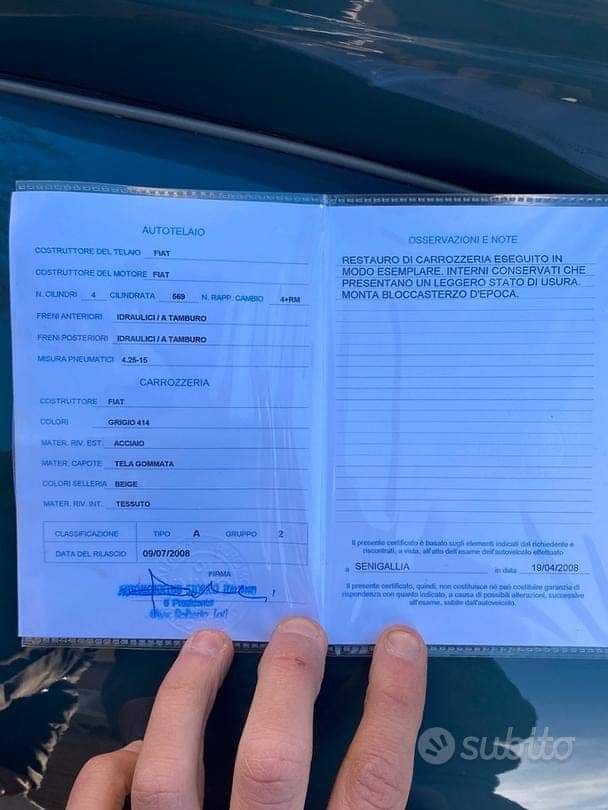 AUTOTELAIO
COSTRUTTORE DEL TELAIO FIAT
COSTRUTTORE DEL MOTORE FIAT
N. CILINDRI 4 CILINDRATA 569 N. RAPP. CAMBIO 4+RM
FRENI ANTERIORI IDRAULICI / A TAMBURO
FRENI POSTERIORI IDRAULICI / A TAMBURO
MISURA PNEUMATICI 4.25-15
CARROZZERIA
COSTRUTTORE FIAT
COLORI GRIGIO 414
MATER. RIV. EST. ACCIAIO
MATER. CAPOTE TELA GOMMATA
COLORI SELLERIA BEIGE
MATER. RIV. INT. TESSUTO
CLASSIFICAZIONE TIPO A GRUPPO 2
DATA DEL RILASCIO 09/07/2008
FIRMA
Il Presidente
Roberto
OSSERVAZIONI E NOTE
RESTAURO DI CARROZZERIA ESEGUITO IN
MODO ESEMPLARE. INTERNI CONSERVATI CHE
PRESENTANO UN LEGGERO STATO DI USURA.
MONTA BLOCCASTERZO D'EPOCA.
Il presente certificato è basato sugli elementi indicati dal richiedente e
riscontrati, a vista, all'atto dell'esame dell'autoveicolo effettuato
a SENIGALLIA in data 19/04/2008
Il presente certificato, quindi, non costituisce né può costituire garanzia di
rispondenza con quanto indicato, a causa di possibili alterazioni, successive
all'esame, subite dall'autoveicolo.
subito